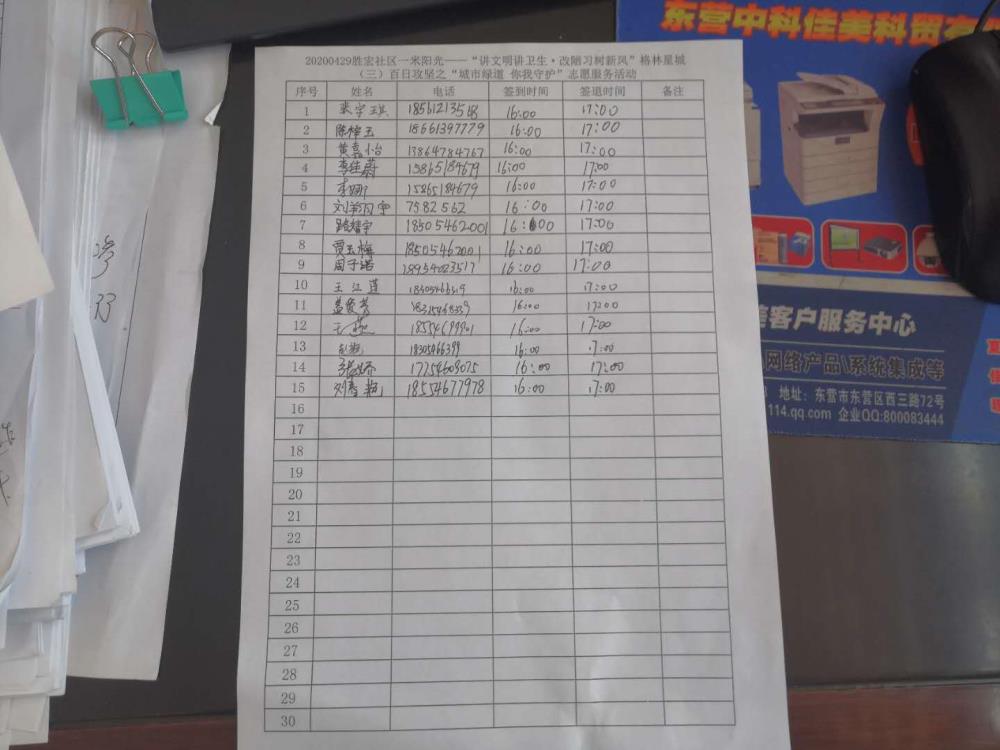 东营中科佳美科贸有
20200429胜宏社区一米阳光——“讲文明讲卫生·改陋习树新风”格林星城
（三）百日攻坚之“城市绿道 你我守护”志愿服务活动
序号 姓名 电话 签到时间 签退时间 备注
1 张宇琪 16:00 17:00
2 陈梓玉 18661397779 16:00 17:00
3 黄嘉怡 13864784767 16:00 17:00
4 李佳蔚 15865184679 16:00 17:00
5 李娜 15865184679 16:00 17:00
6 7982562 16:00 17:00
7 18505462001 16:00 17:00
8 贾玉梅 18505462001 16:00 17:00
9 周子诺 18954023517 16:00 17:00
10 王江莲 16:00 17:00
11 16:00 17:00
12 16:00 17:00
13 18305466399 16:00 17:00
14 17754609075 16:00 17:00
15 18554677978 16:00 17:00
16
17
18
19
20
21
22
23
24
25
26
27
28
29
30
客户服务中心
网络产品\系统集成等
地址：东营市东营区西三路72号
114.qq.com 企业QQ:800083444